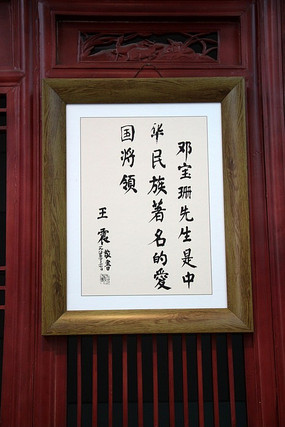 邓宝珊先生是中
华民族著名的爱
国将領
王震敬书